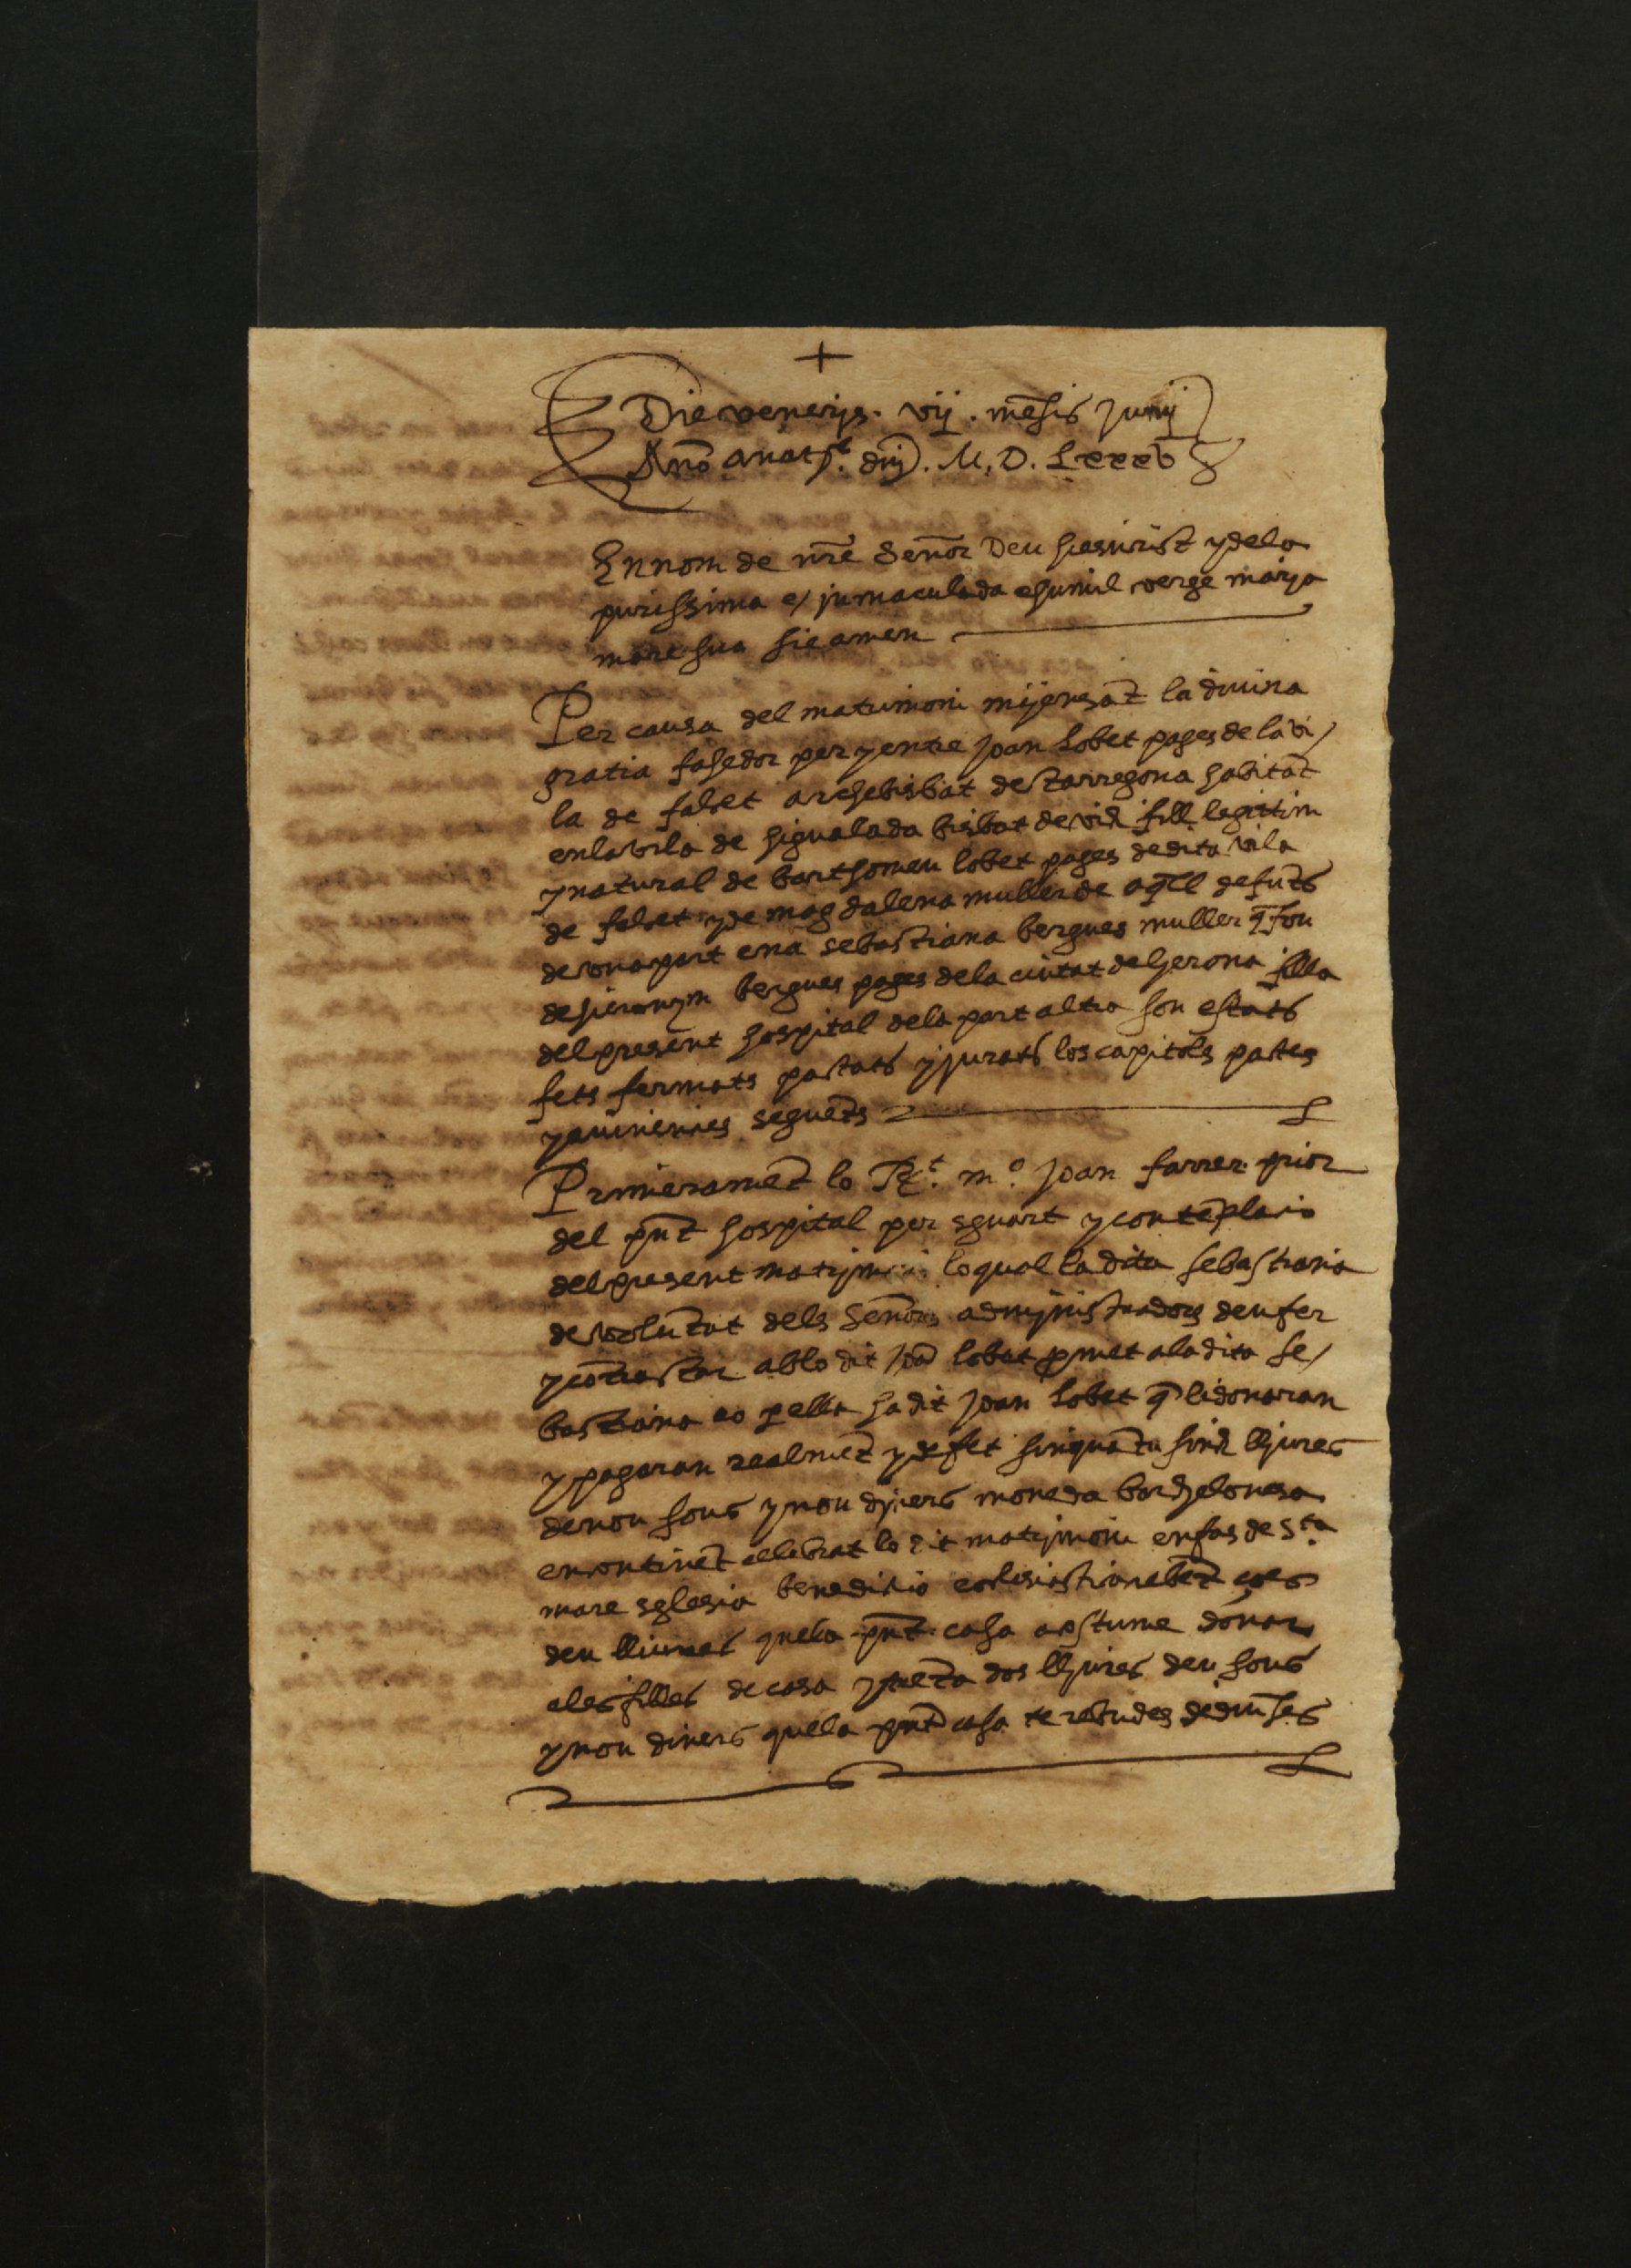 +
Die venerjs. vij. mēsis Junij
Anō a natt. dnj. M. D. Lxxxv
En nom de nr̄e Señor Deu hiesucrist y de la
purissima e/ jnmaculada e humil verge marja
mare sua sie amen
Per causa del matrimoni mijensāt la diuina
gratia fahedor per y entre Joan Lobet pages de la vi/
la de falset archebisbat de tarregona habitāt
en la vila de higualada bisbat de vich fill legittim
y natural de barthomeu lobet pages de dita vila
de falset y de magdalena muller de aq̄ll defūts
de vna part e na sebastiana bergues muller q̄ fou
de hieronym bergues pages de la ciutat de Gerona filla
del present hospital de la part altra son estats
fets fermats pactats y jurats los capitols pactes
y auinenies seguēts
Primeramēt lo Rt. mo. Joan farrer prior
del pn̄t hospital per sguart y contēplacio
del present matrjmoni lo qual la dita sebastiana
de volūtat dels Señors admjnistradors deu fer
y cōtractar ab lo dit Joā lobet pmet a la dita se/
bastiana eo p ella ha dit Joan Lobet q̄ li donaran
y pagaran realmēt y de fet sinquāta sinch lljures
de nou sous y nou djners moneda barchelonesa
encontinēt cellebrat lo dit matrjmoni en fas de sta.
mare sglesia benedictio ecclesiastica rebēt ço es
deu lliures que la pn̄t casa acostume donar
a les filles de casa y dos lljures deu sous
y nou diners que la pn̄t casa te rebudes